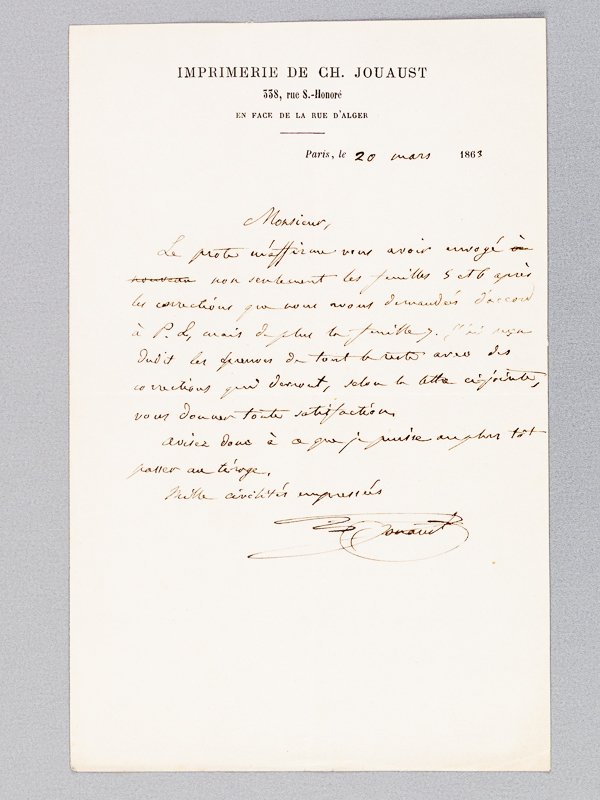 IMPRIMERIE DE CH. JOUAUST
338, rue S.-Honoré
EN FACE DE LA RUE D'ALGER
Paris, le 20 mars 1863
Monsieur,
Le prote m'affirme vous avoir envoyé à
nouveau non seulement les feuilles 5 et 6 après
les corrections que nous vous demandées d'accord
à P. L, mais de plus la feuille 7. J'ai reçu
dudit les épreuves de tout le reste avec des
corrections qui devront, selon la lettre ci-jointe,
vous donner toute satisfaction.
avisez donc à ce que je puisse au plus tôt
passer au tirage.
Mille civilités empressées
Jouaust